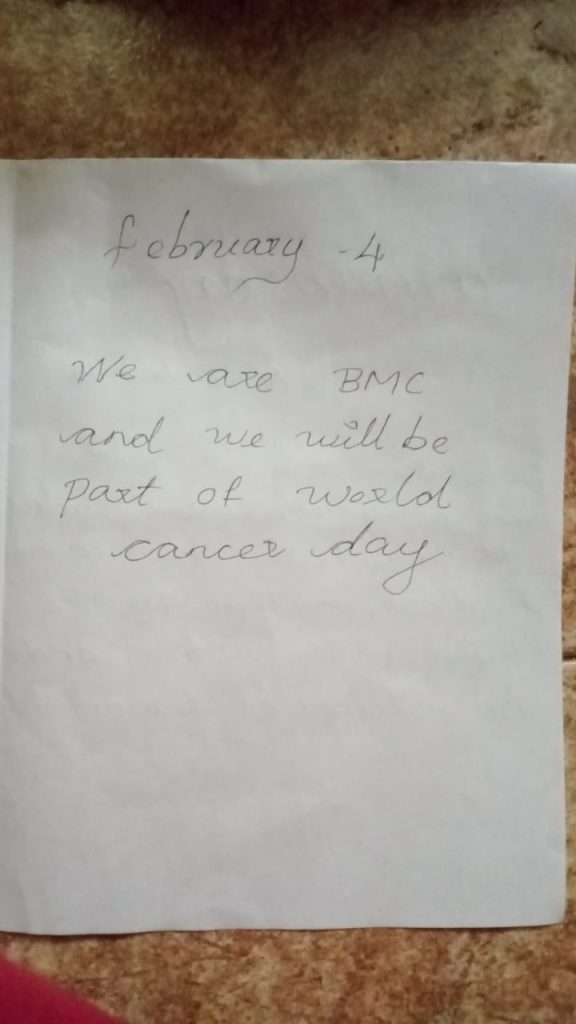 february - 4
We are BMC
and we will be
part of world
cancer day